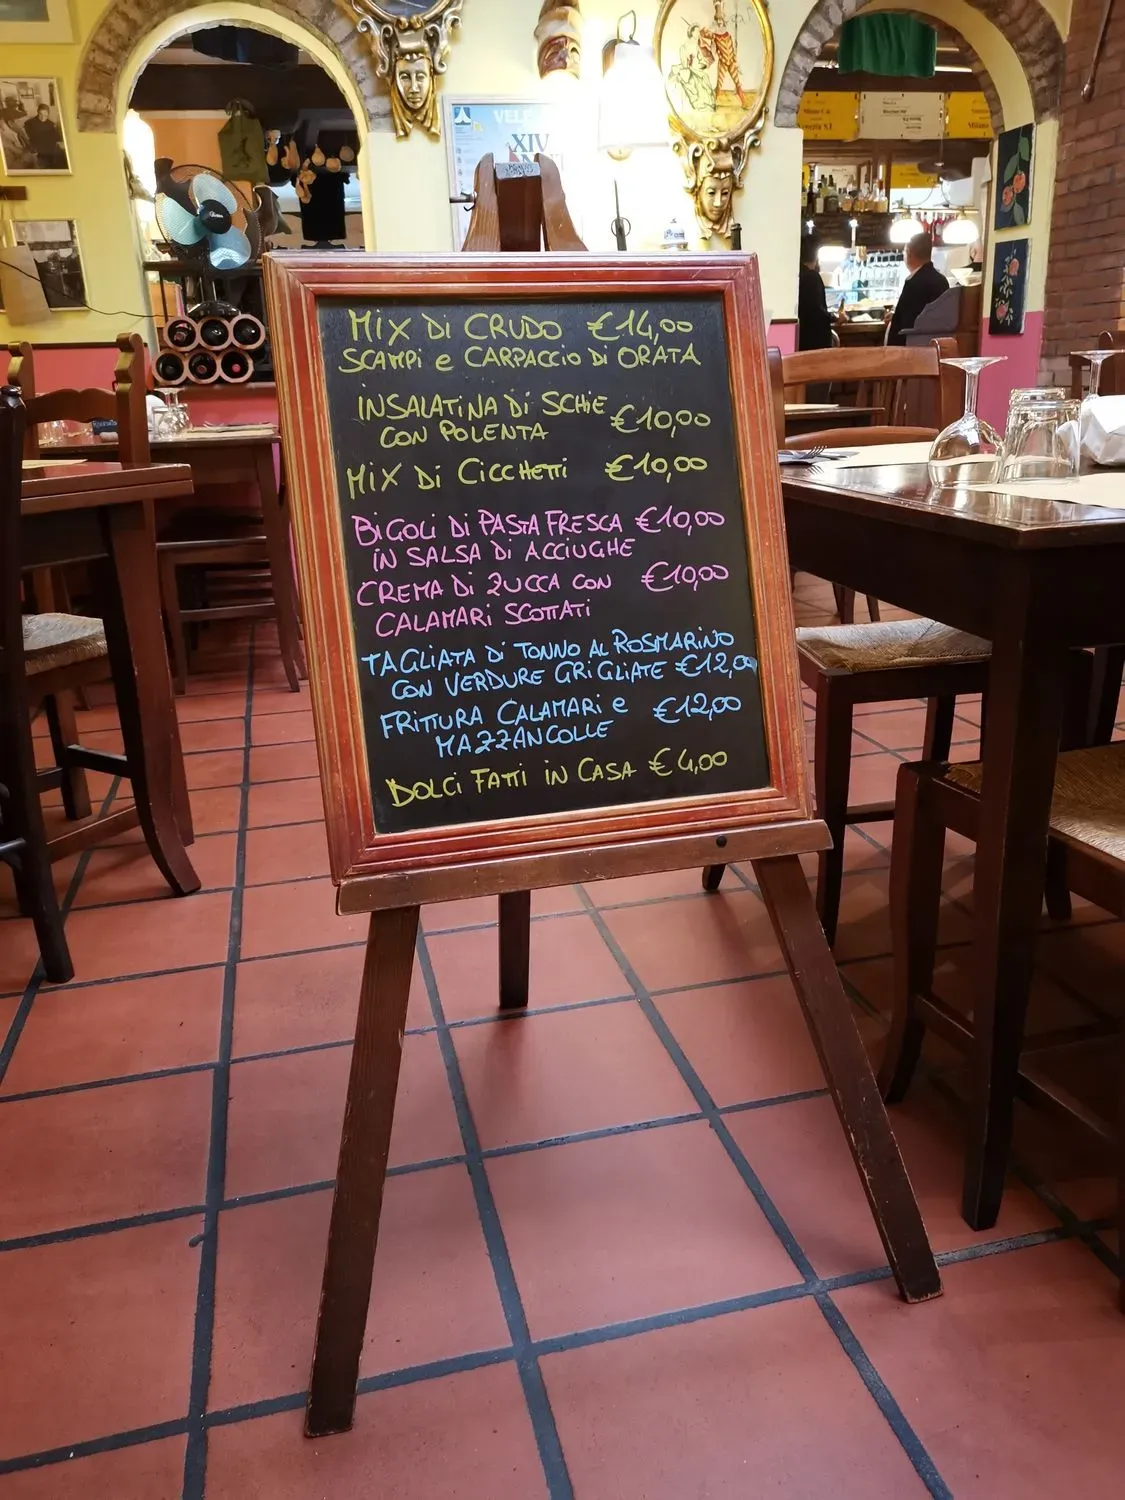 VELE
XIV
MIX Di CRUDO €14,00
SCAMPi e CARPACCiO Di ORATA
INSALATINA Di SCHiE €10,00
CON POLENTA
MIX Di CiCCHETTi €10,00
BiGOLi Di PASTA FRESCA €10,00
iN SALSA Di ACCiUGHE
CREMA Di ZUCCA CON €10,00
CALAMARi SCOTTATi
TAGLiATA Di TONNO AL ROSMARiNO
CON VERDURE GRiGLiATE €12,00
FRiTTURA CALAMARi e €12,00
MAZZANCOLLE
DOLCi FATTi iN CASA €4,00